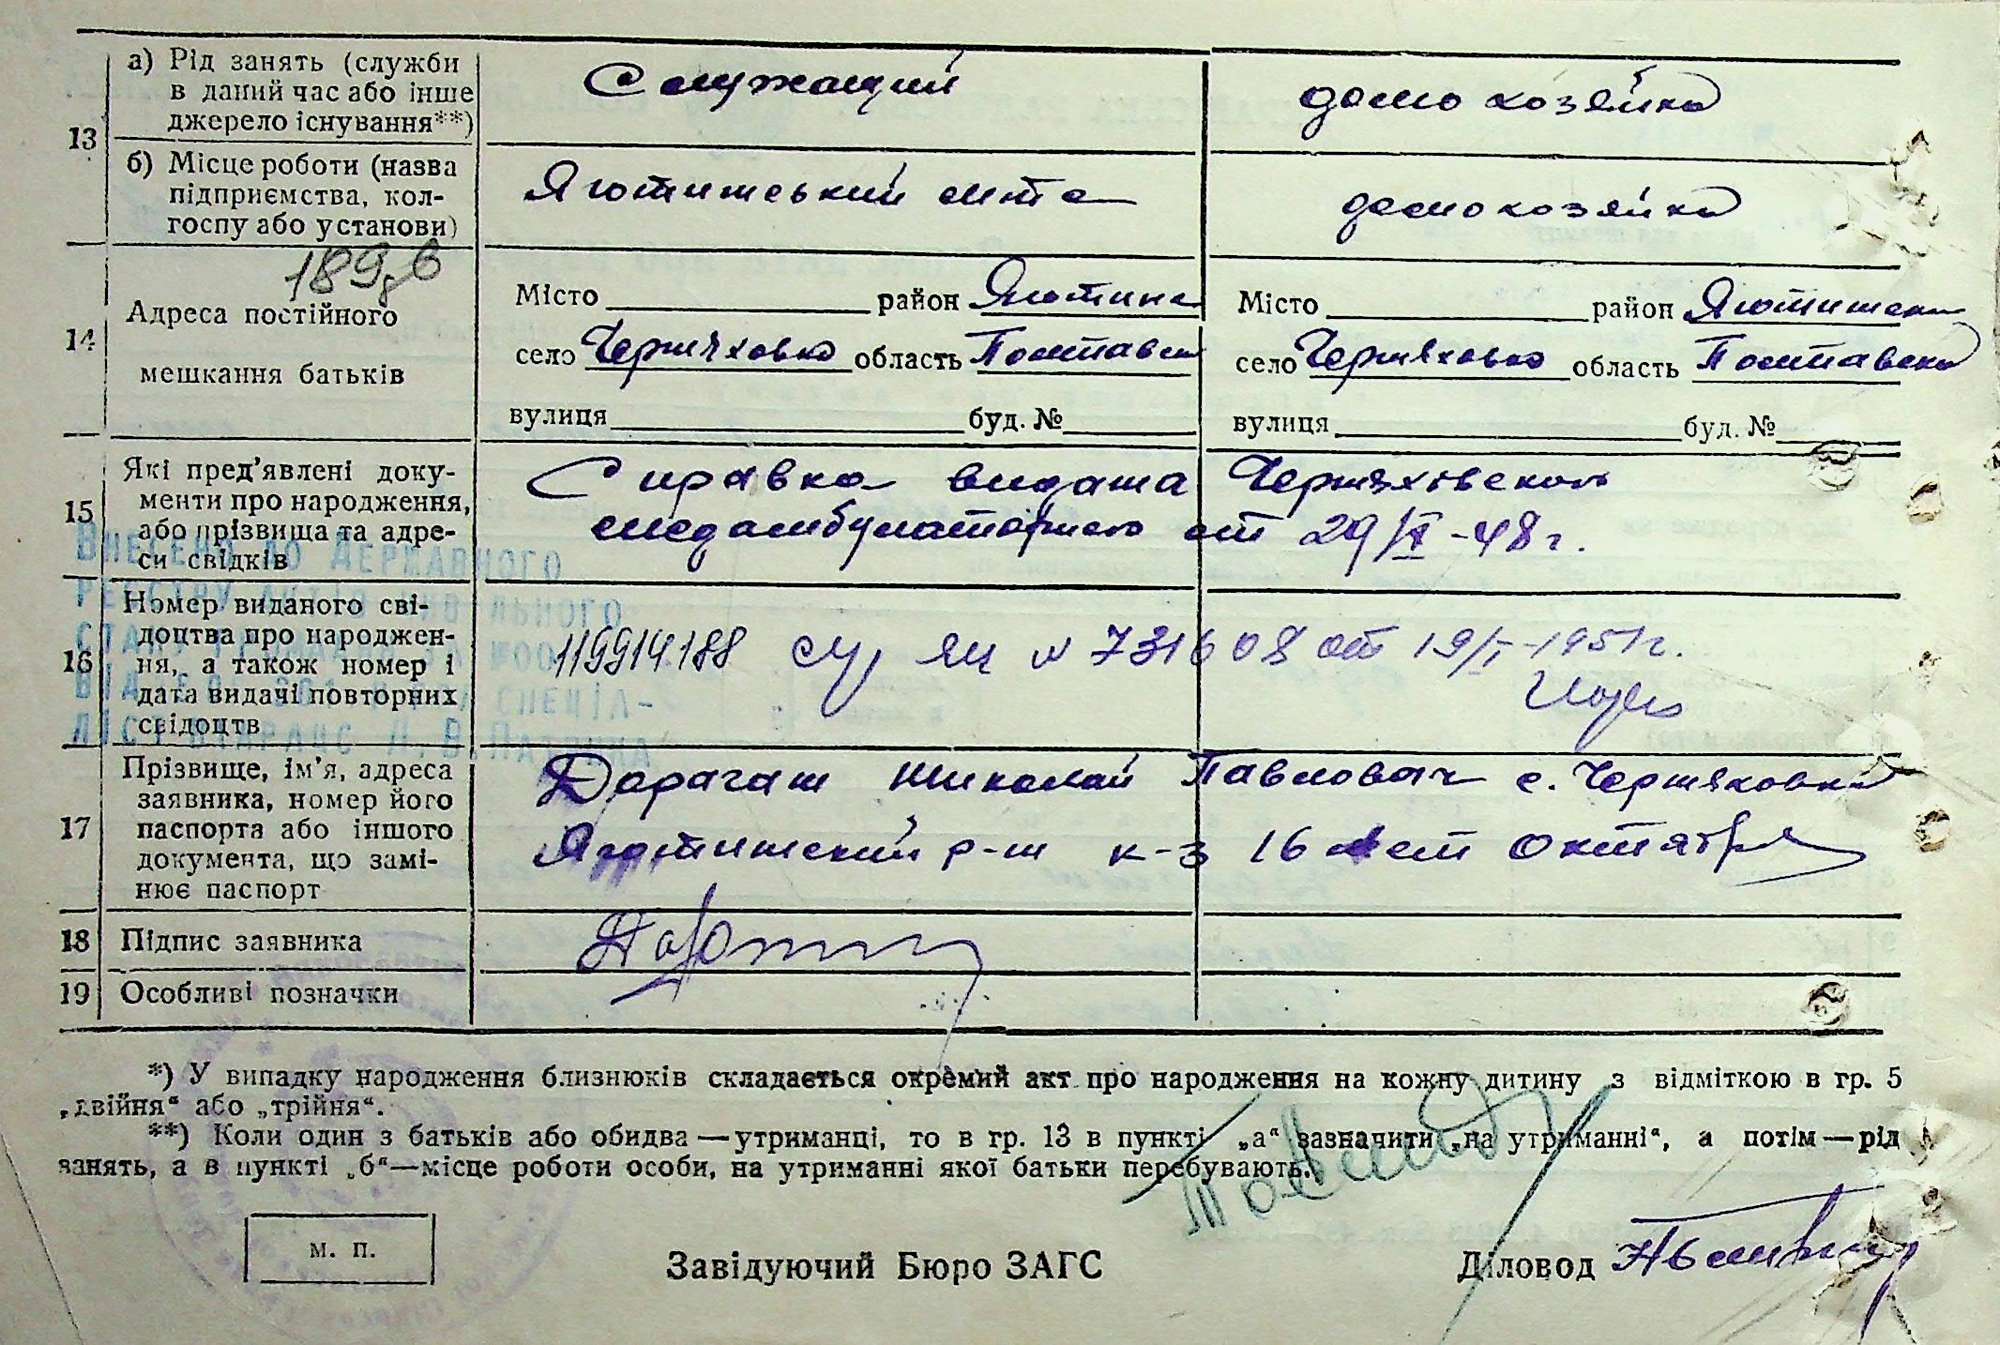 13
а) Рід занять (служби
в даний час або інше
джерело існування**)
Служащий
домохозяйка
б) Місце роботи (назва
підприємства, кол-
госпу або установи)
Яготинський
домохозяйка
14
Адреса постійного
мешкання батьків
Місто район
село Черняховка область Полтавск
вулиця буд. №
Місто район Яготинск
село Черняховка область Полтавска
вулиця буд. №
15
Які пред’явлені доку-
менти про народження,
або прізвища та адре-
си свідків
Справка видана Черняховской
медамбулаторією от 29/ -48 г.
Внесено до Державного
реєстру актів цивільного
16
Номер виданого сві-
доцтва про народжен-
ня, а також номер і
дата видачі повторних
свідоцтв
119914188 ЯЦ № 731608 от 19/I-1951г.
17
Прізвище, ім’я, адреса
заявника, номер його
паспорта або іншого
документа, що замі-
нює паспорт
Дараган Николай Павлович с. Черняховка
Яготинский р-н к-з 16 лет Октября
18 Підпис заявника
19 Особливі позначки
*) У випадку народження близнюків складається окремий акт про народження на кожну дитину з відміткою в гр. 5
„двійня“ або „трійня“.
**) Коли один з батьків або обидва—утриманці, то в гр. 13 в пункті „а“ зазначити „на утриманні“, а потім—рід
занять, а в пункті „б“—місце роботи особи, на утриманні якої батьки перебувають.
м. п.
Завідуючий Бюро ЗАГС
Діловод